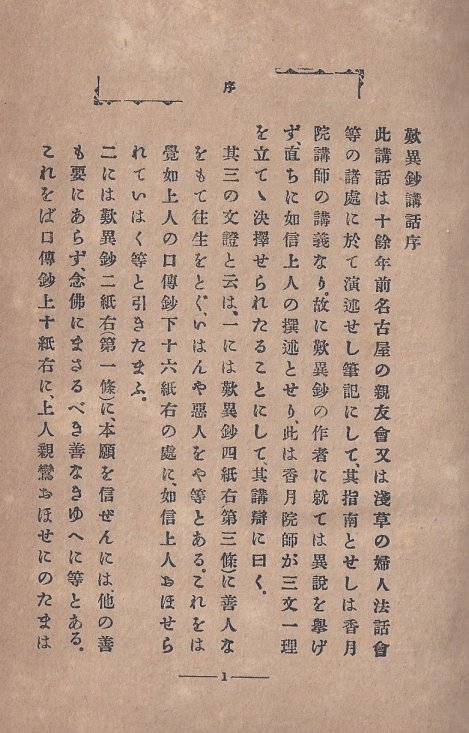 序
歎異鈔講話序
此講話は十餘年前名古屋の親友會又は淺草の婦人法話會
等の諸處に於て演述せし筆記にして、其指南とせしは香月
院講師の講義なり。故に歎異鈔の作者に就ては異說を擧げ
ず、直ちに如信上人の撰述とせり、此は香月院師が三文一理
を立てゝ決擇せられたることにして、其講辯に曰く、
其三の文證と云は、一には歎異鈔四紙右(第三條)に善人な
をもて往生をとぐ、いはんや惡人をや等とある。これをは
覺如上人の口傳鈔下十六紙右の處に、如信上人おほせら
れていはく等と引きたまふ。
二には歎異鈔二紙右(第一條)に、本願を信ぜんには、他の善
も要にあらず、念佛にまさるべき善なきゆへに等とある。
これをば口傳鈔上十紙右に、上人親鸞おほせにのたまは
1